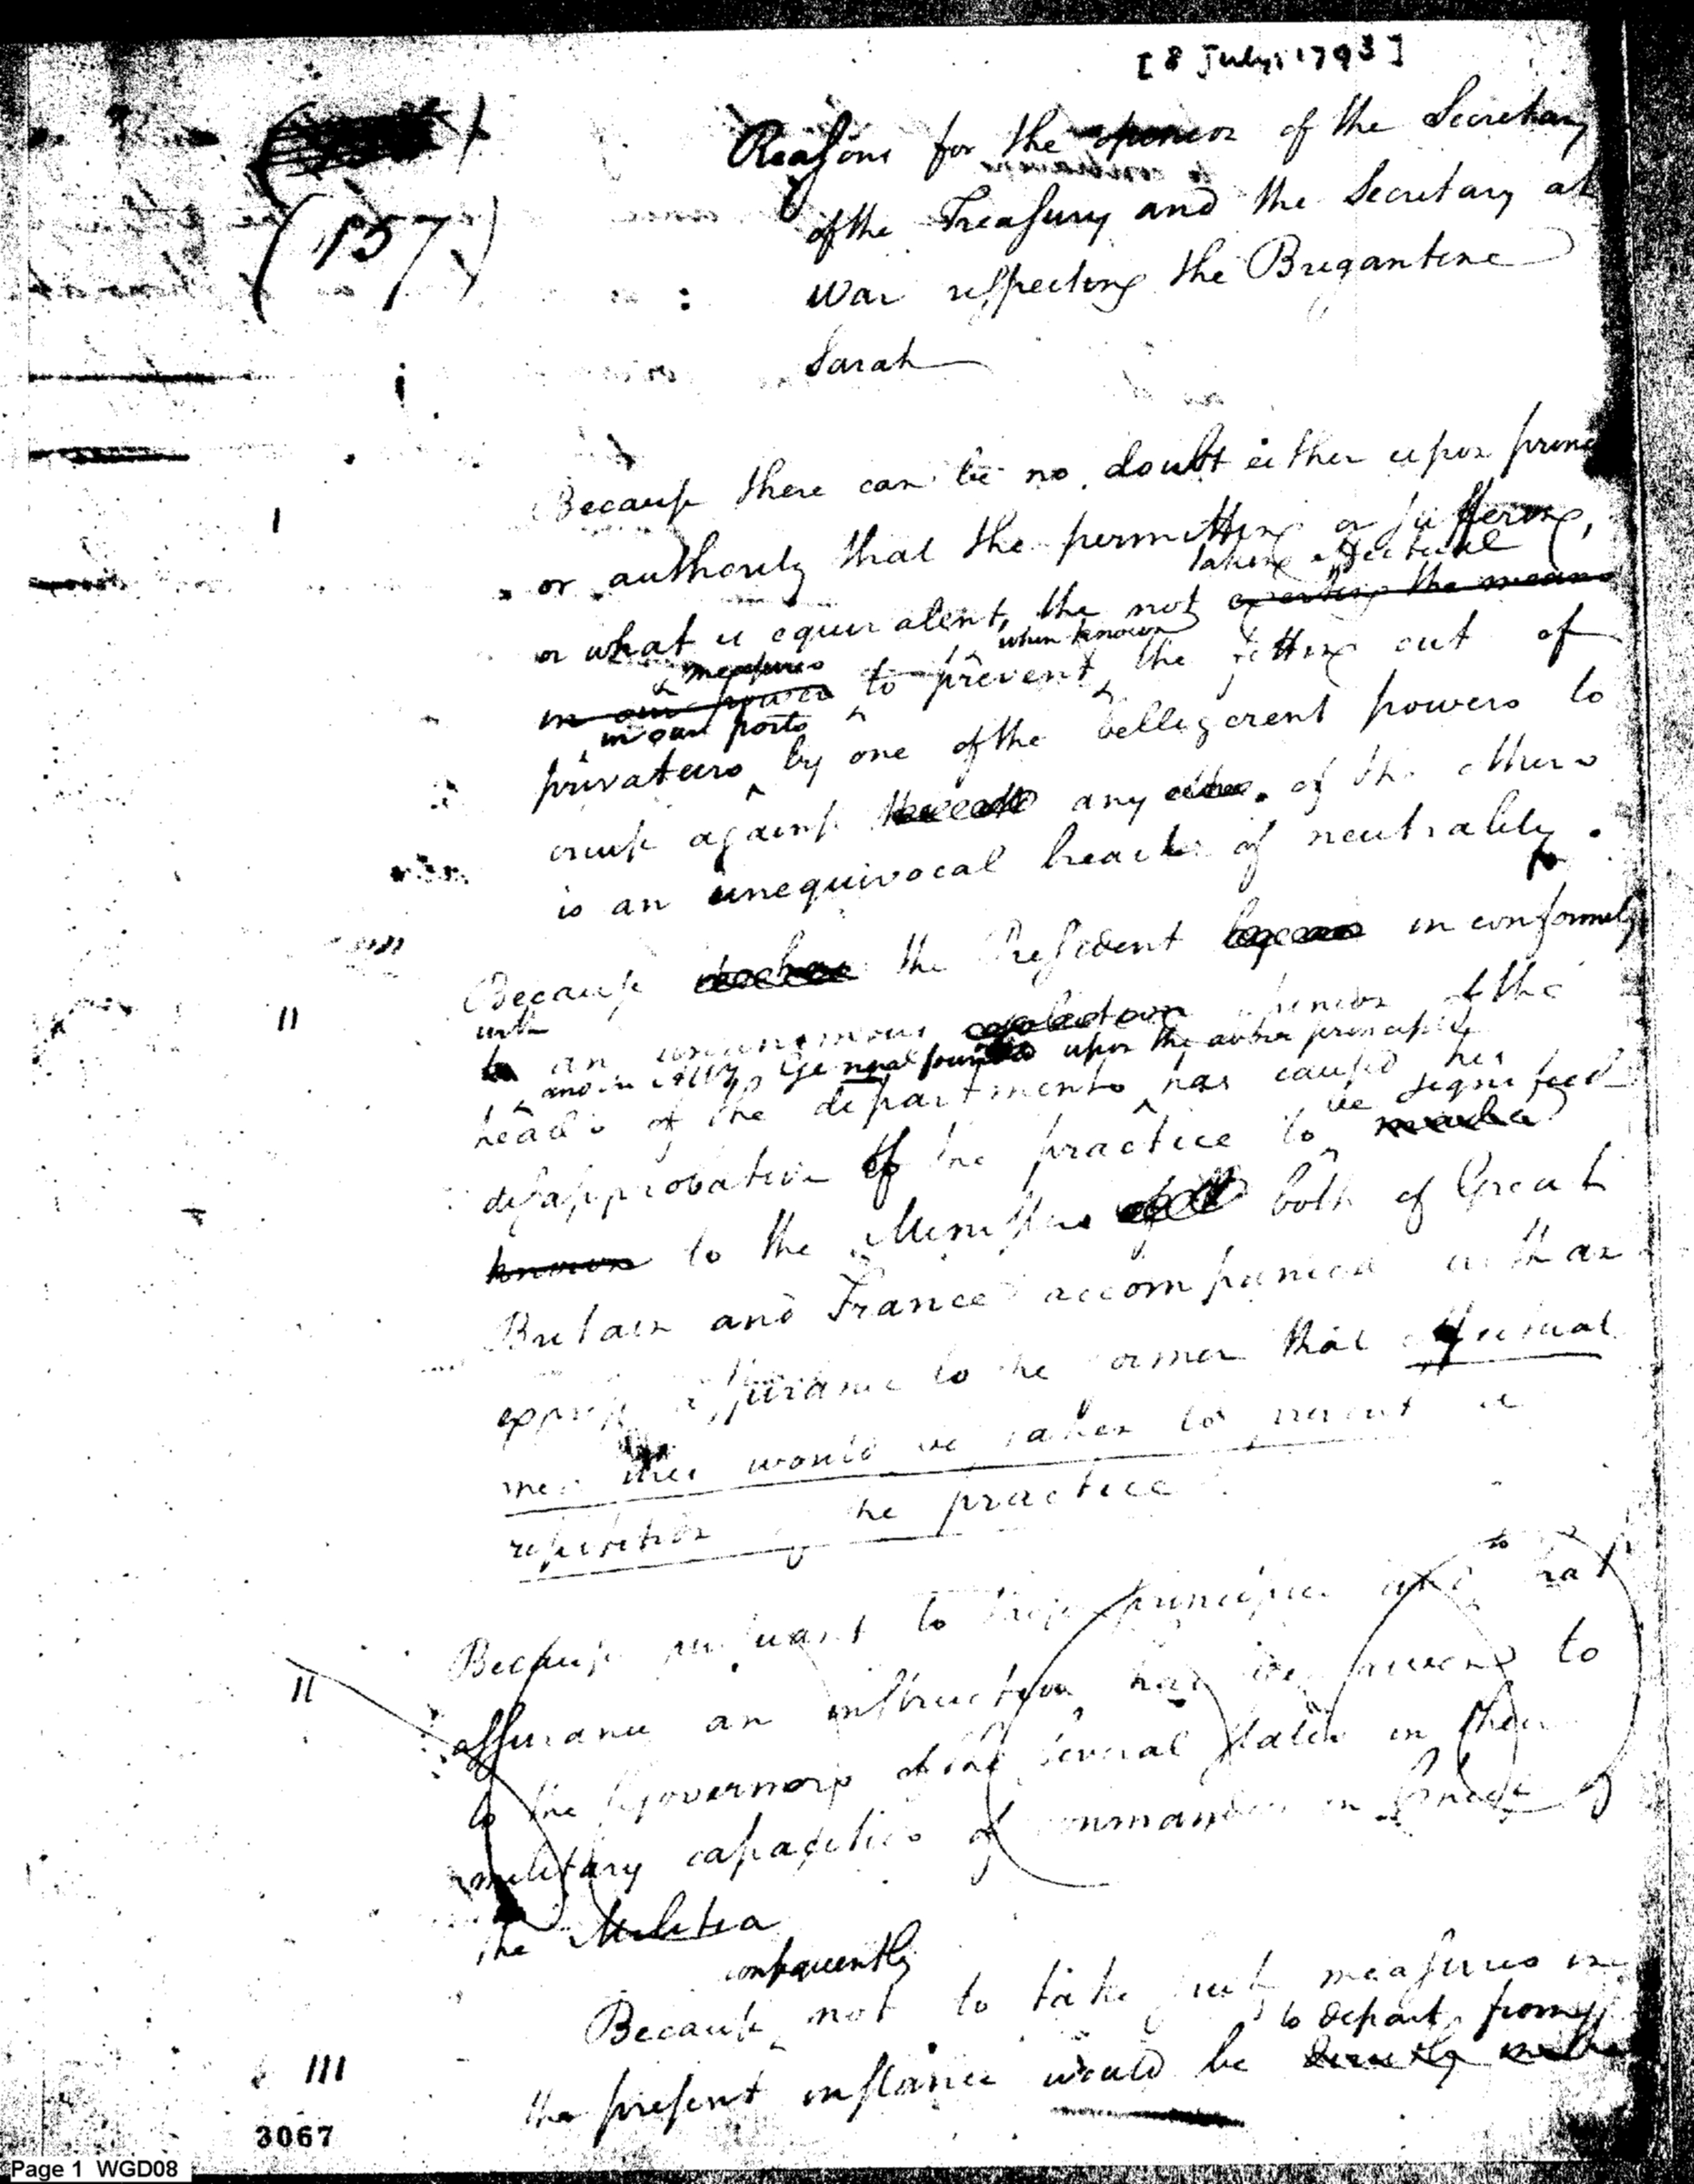 [8 July, 1793]
Reasons for the opinion of the Secretary
of the Treasury and the Secretary at
War respecting the Brigantine
Sarah
(157)
I
Because there can be no doubt either upon princ
or authority that the permitting or suffering,
taking effectual
or what is equivalent, the not exerting the means
measures when known
in our power to prevent the fitting out of
in our ports
privateers by one of the belligerent powers to
cruise against any of the others
is an unequivocal breach of neutrality.
II
Because the President in conformity
with
to an unanimous opinion of the
and in May General founded upon the above principle
heads of the departments has caused his
be signified
disapprobation of the practice to
known to the Ministers both of Great
Britain and France accompanied with an
express assurance to the former that effectual
measures would be taken to prevent a
repetition of the practice.
II
Because pursuant to those principles and that
assurance an instruction has been given to
to the Governors of the several states in their
military capacities of commanders in Chief of
the Militia
consequently
III
Because not to take such measures in
to depart from
the present instance would be directly
3067
Page 1 WGD08